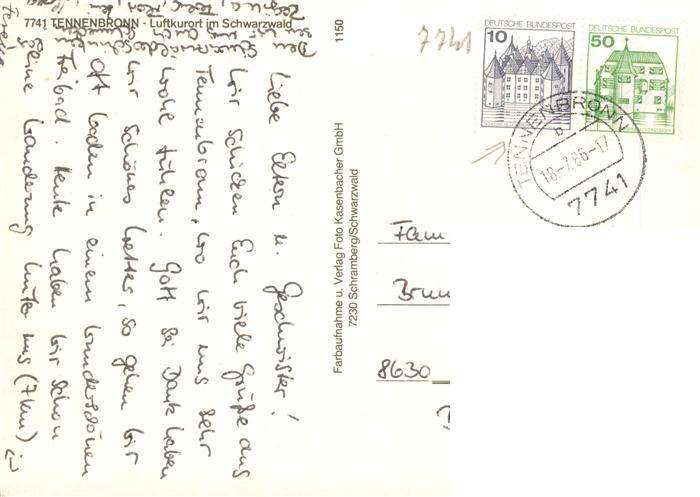 7741 TENNENBRONN · Luftkurort im Schwarzwald
1150
Liebe Eltern u. Geschwister!
Wir schicken Euch viele Grüße aus
Tennenbronn, wo wir uns sehr
wohl fühlen. Gott sei Dank haben
wir schönes Wetter, so gehen wir
oft baden in einem wunderschönen
Freibad. Heute haben wir schon
eine Wanderung hinter uns (7km)
Farbaufnahme u. Verlag Foto Kasenbacher GmbH
7230 Schramberg/Schwarzwald
7741
DEUTSCHE BUNDESPOST
10
DEUTSCHE BUNDESPOST
50
TENNENBRONN
b
18-7.86-17
7741
Fam
Brun
8630